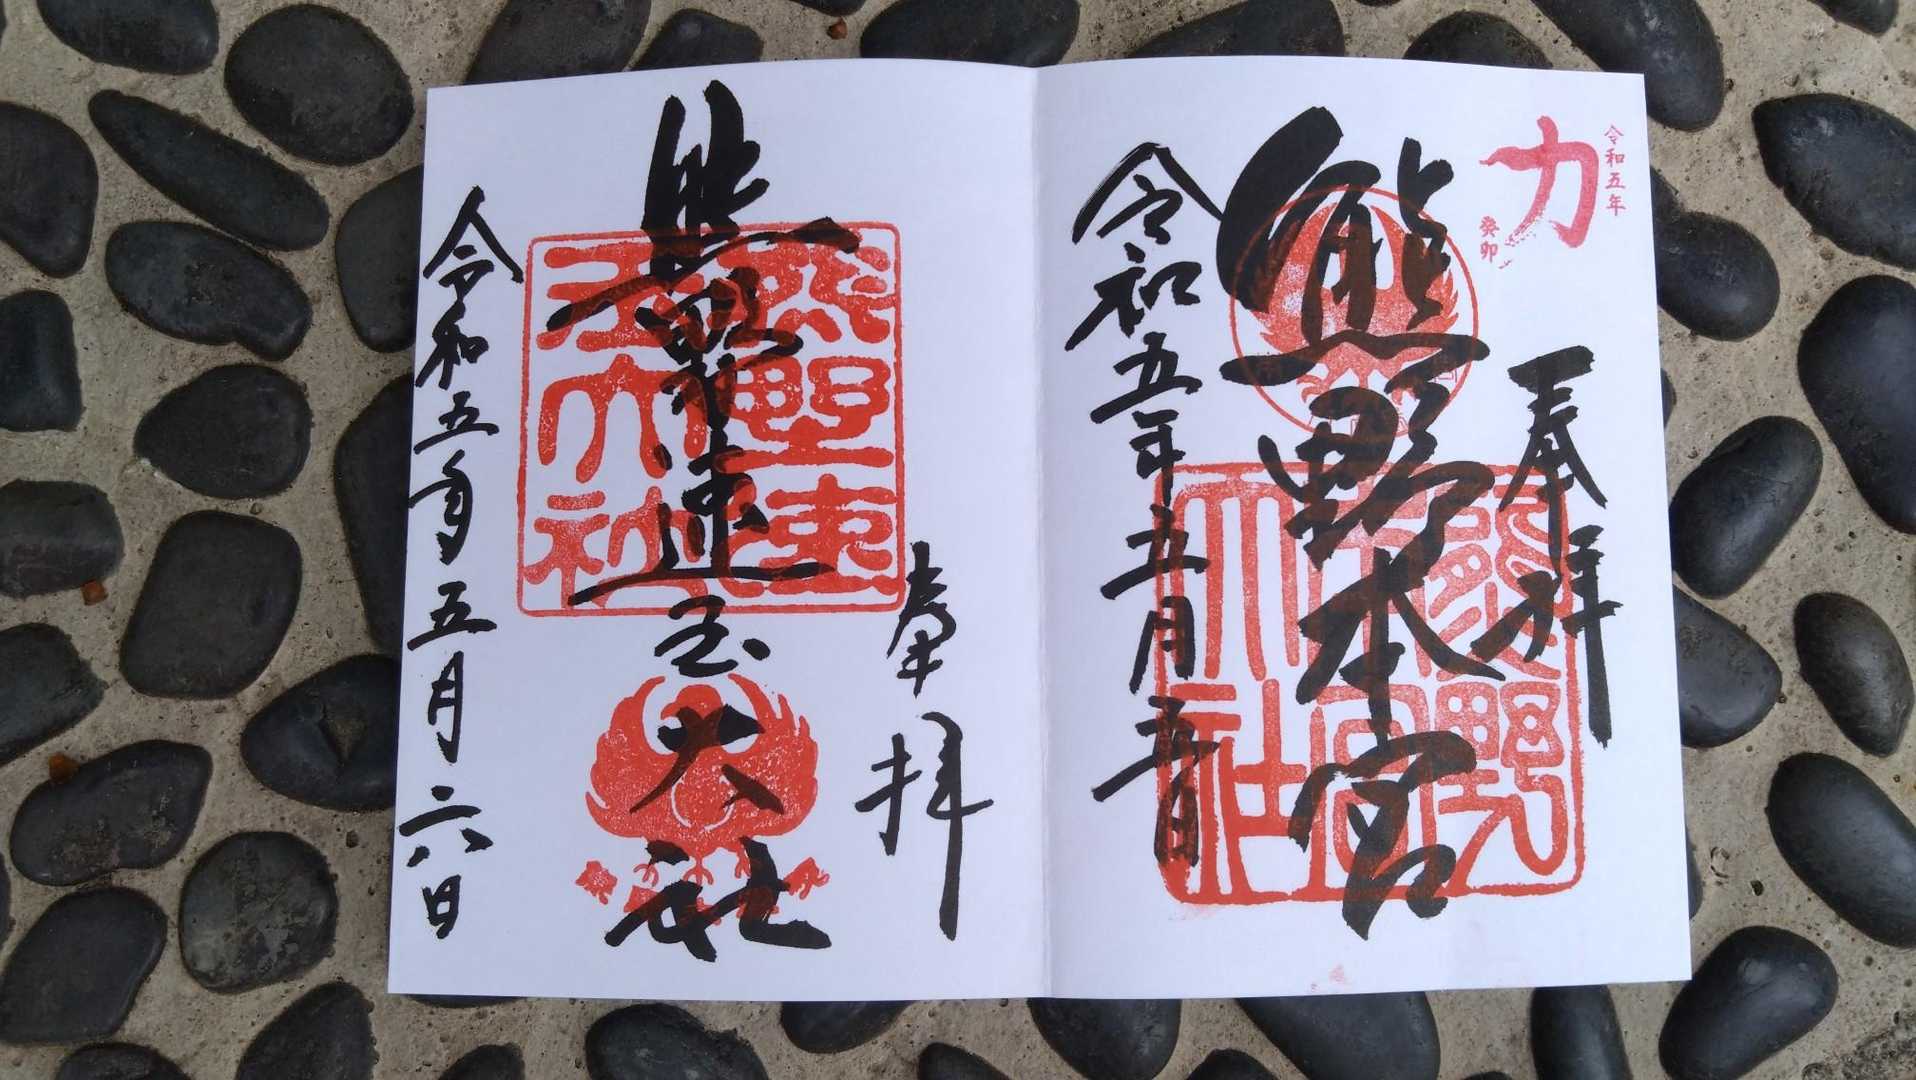 令和五年
力
癸卯
奉拝
熊野本宮
熊野本宮大社
令和五年五月五日
奉拝
熊野速玉大社
熊野速玉大社
令和五年五月六日